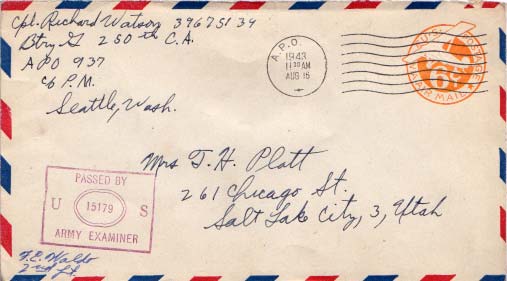 Cpl. Richard Watson 39675139
Btry G 250th C.A.
APO 937
c/o P.M.
Seattle, Wash.
A.P.O.
1943
11 30 AM
AUG 16
U.S. POSTAGE
6¢
VIA AIR MAIL
Mrs T. H. Platt
261 Chicago St.
Salt Lake City, 3, Utah
PASSED BY
U 15179 S
ARMY EXAMINER
2nd Lt.